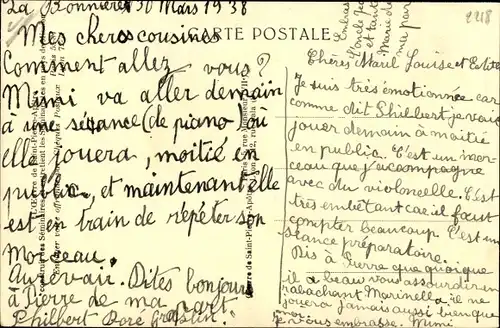 La Bonninière 30 Mars 1938
Mes chers cousines
Comment allez vous?
Mimi va aller demain
à une séance (de piano) où
elle jouera, moitié en
public, et maintenant elle
est en train de répéter son
morceau.
Au revoir. Dites bonjour
à Pierre de ma part.
Philbert Doré Graslin
CARTE POSTALE
2218
Chères Marie Louise et
Je suis très émotionnée car
comme dit Philbert, je vais
jouer demain à moitié
en public. C'est un mor-
ceau que j'accompagne
avec du violoncelle. C'est
très embêtant car il faut
compter beaucoup. C'est une
séance préparatoire.
Dis à Pierre que quoique
il a beau vous assourdir en
rabachant Marinella, il ne
jouera jamais aussi bien que
moi
Je vous embrasse. Mimi
Embrasse
l'oncle
et tante
Marie de
ma part